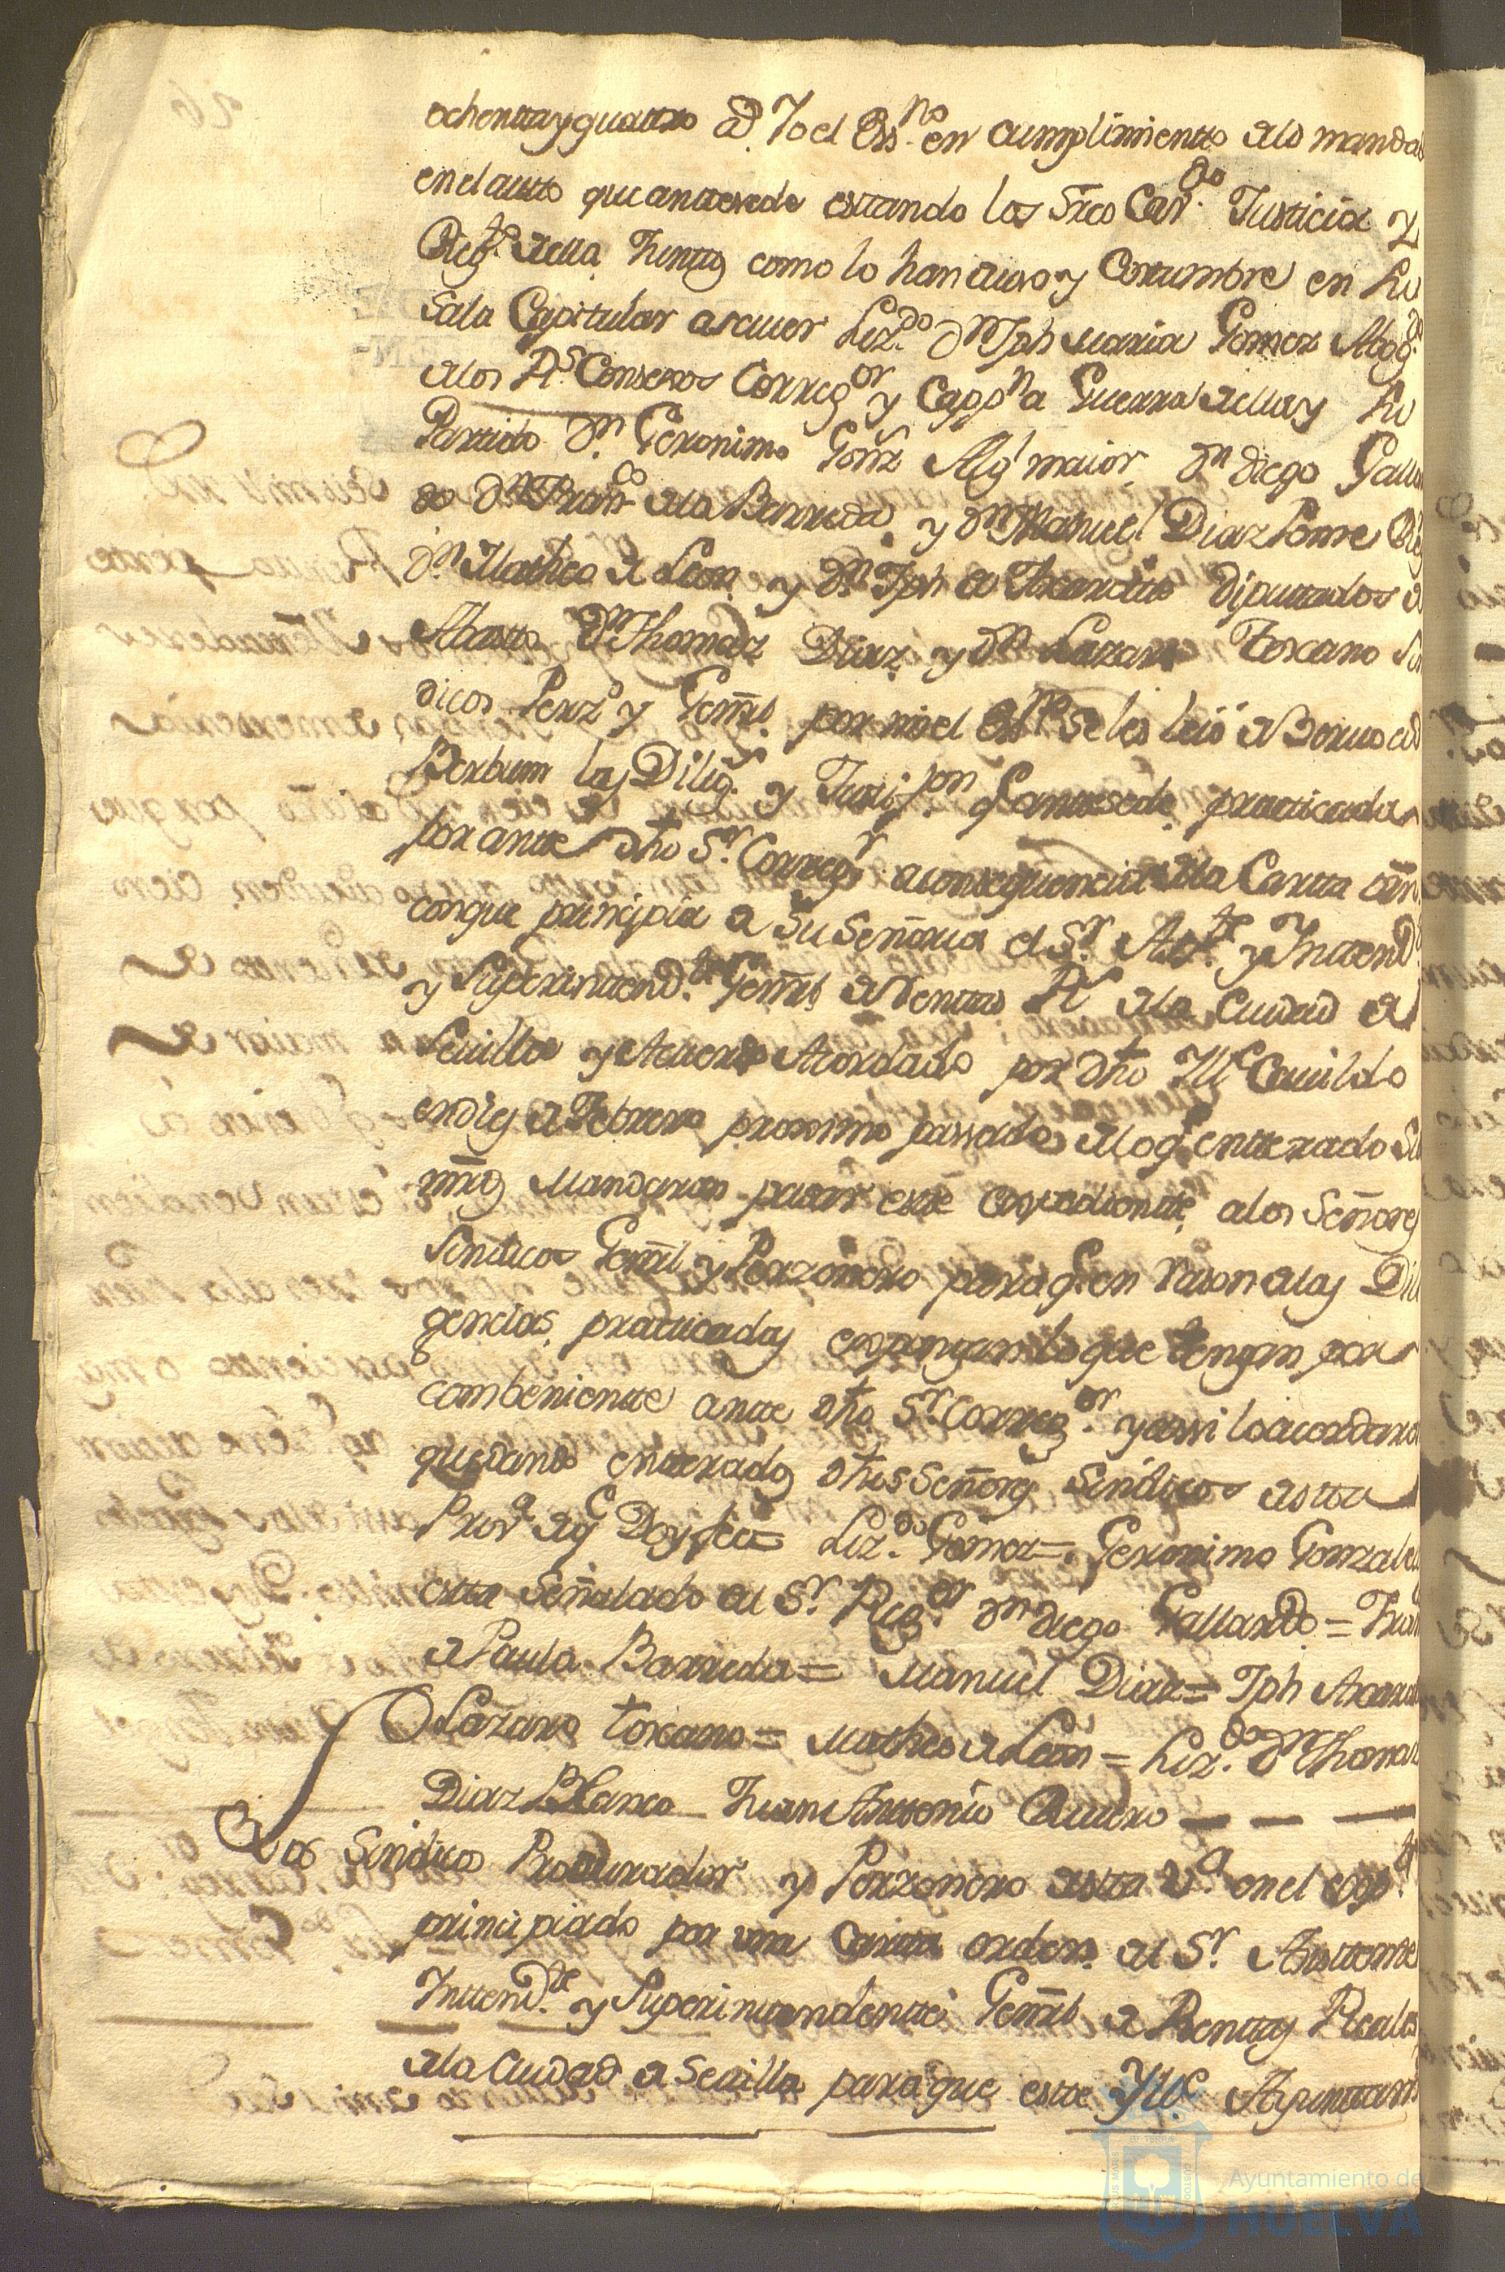 ochenta y quattro ad. Yo el Essno. en cumplimiento alo mandad
en el autto que antesede estando los Sres Cavdo. Justicia y
Regto. della Junttos como lo han de uso y Costumbre en su
Sala Capitular asaver Lizdo. Dn Jph Maria Gomez Abogdo.
alos Rs. Consexos Corregor y Cappn a Guerra della y su
Partido Dn. Geronimo Gonz Algl maior, Dn diego Galla
do Dn Franco de la Barreda, y Dn Manuel Diaz Ponze Reg
Dn. Matheo de Leon, y Dn. Jph de diputtados de
Abasto, Dn Thomas Diaz, y Dn Lazaro Toscano Sin
dicos Perzo. y Genrl. por mi el Essno se les leió de Vervo ad
Berbum las Diligs. y Justifon. q antesede practicadas
por ante dho Sr. Corregr a consequencia de la Cartta orn.
con que principia de Su Señoria el Sr. Aste. y Intend
y Superintendte. Genrl de Renttas Rs de la Ciudad de
Sevilla y Acuerdo Acordado por dho Ille Cavildo
en diez de Febrero proximo passado, de lo q. entterado Su
mrds Mandaron pasar este expediente, a los Señores
Sindicos Genrl y Perzonero para q. en rason de las Dili
gencias practicadas expongan lo que tengan por
combeniente ante dho Sr. Corregor. y assi lo acordaron
quedando entterados dhos Señores Sindicos desta
Prova de q Doy fee = Lizdo. Gomez = Geronimo Gonzalez
esta Señalado del Sr. Regor. Dn diego Gallardo = Fran
de Paula Barreda = Manuel Diaz = Jph
Lazaro toscano = Matheo de Leon = Lizdo. Dn Thomas
Diaz Blanco Juan Anttonio Quintero
Los Sindicos Procurador y Perzonero desta Va. en el expte
principiado por una Cartta orden del Sr Asistente
Intendte. y Superintendente Genrl de Renttas Reales
de la Ciudad de Sevilla para que este Ylle Ayuntam
Ayuntamiento de
HUELVA